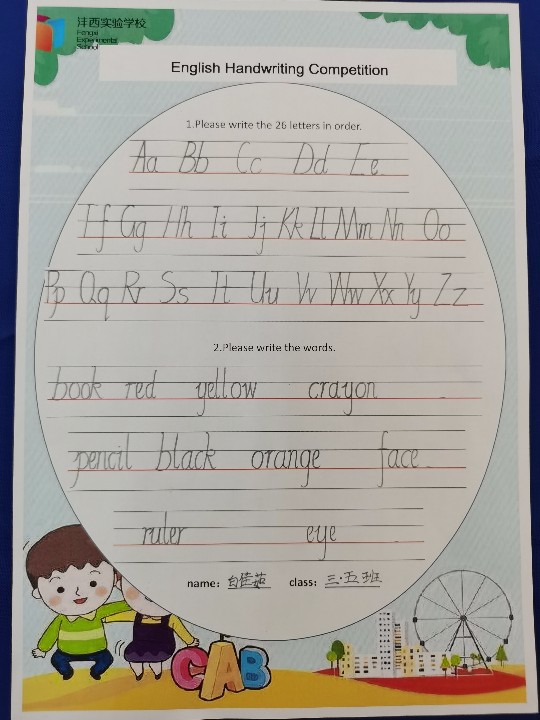 沣西实验学校
Fengxi
Experimental
School
English Handwriting Competition
1.Please write the 26 letters in order.
Aa Bb Cc Dd Ee
Ff Gg Hh Ii Jj Kk Ll Mm Nn Oo
Pp Qq Rr Ss Tt Uu Vv Ww Xx Yy Zz
2.Please write the words.
book red yellow crayon
pencil black orange face
ruler eye
name: 白佳茹 class: 三·五班
CAB